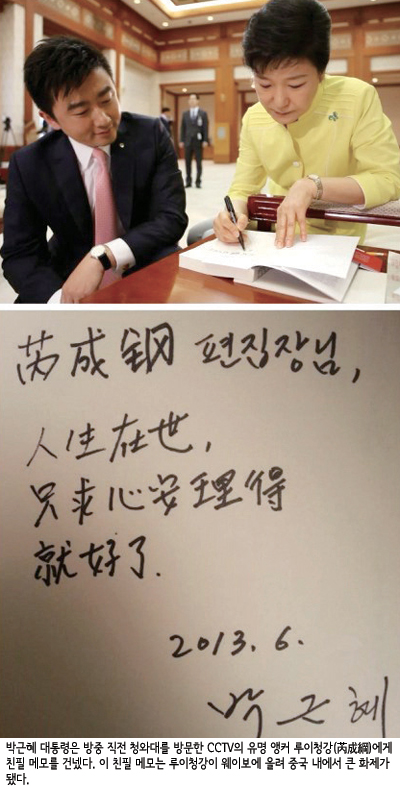 芮成钢 편집장님,
人生在世,
只求心安理得
就好了.
2013. 6.
박근혜
박근혜 대통령은 방중 직전 청와대를 방문한 CCTV의 유명 앵커 루이청강(芮成綱)에게
친필 메모를 건넸다. 이 친필 메모는 루이청강이 웨이보에 올려 중국 내에서 큰 화제가
됐다.